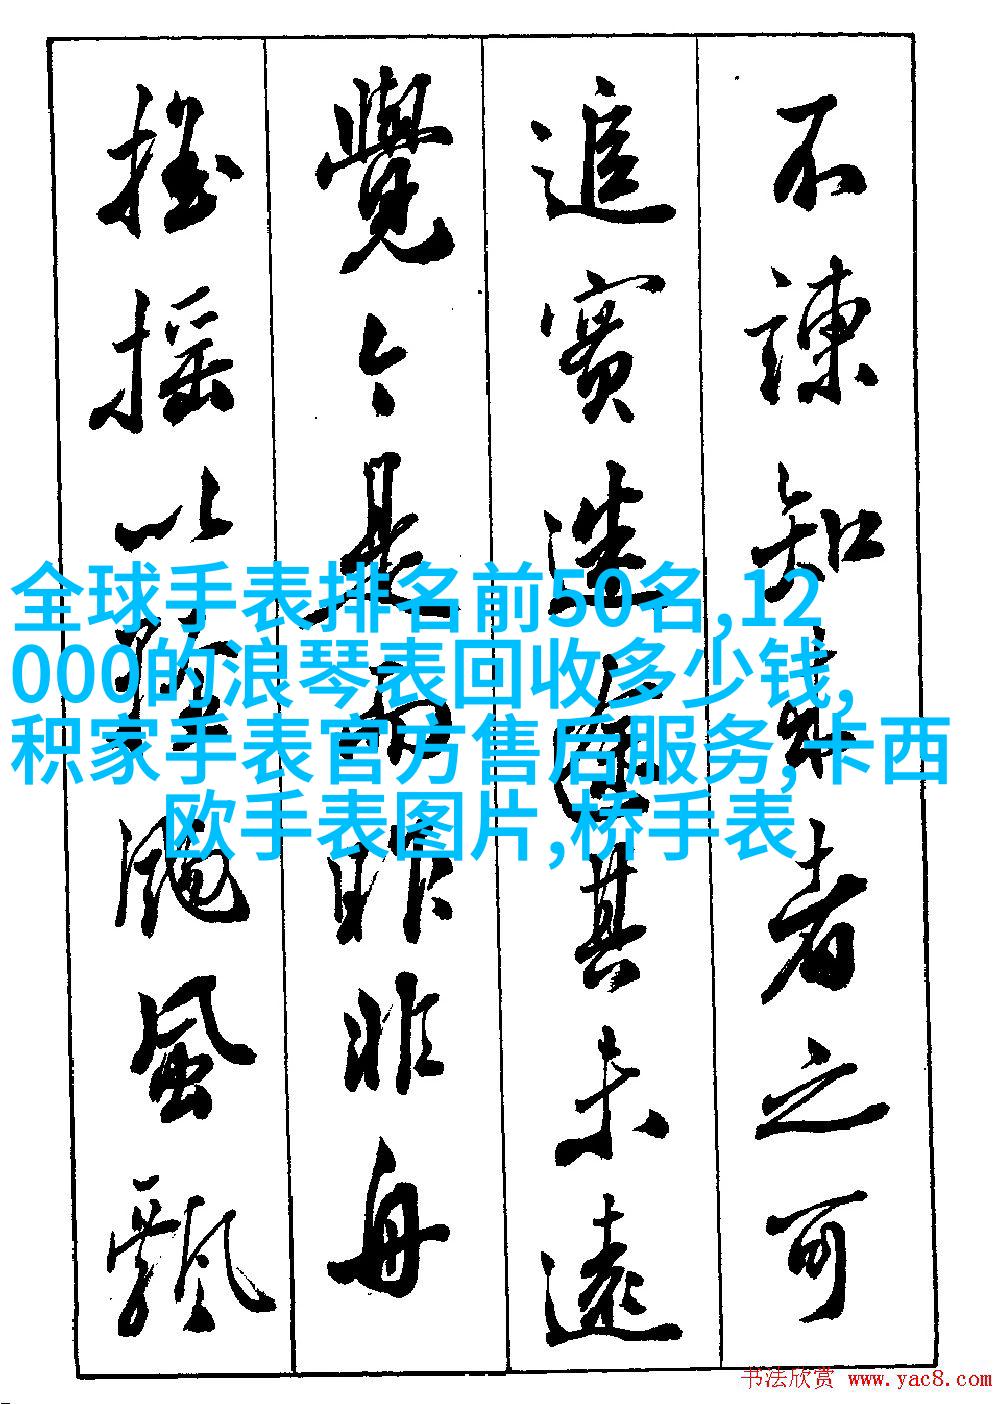 不諫知来者之可
追實迷途其未遠
覺今是而昨非舟
摇摇以輕颺風飄
全球手表排名前50名,12
000的浪琴表回收多少钱,
积家手表官方售后服务,卡西
欧手表图片,桥手表
书法欣赏 www.yac8.com